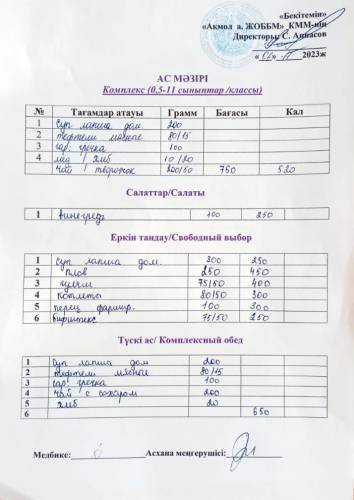 «Бекітемін»
«Ақмол а. ЖОББМ» КММ-нің
Директоры: С. Аппасов
2023ж
АС МӘЗІРІ
Комплекс (0,5-11 сыныптар /классы)
№ Тағамдар атауы Грамм Бағасы Кал
1 Суп лапша дом. 200
2 тефтели мясные 80/15
3 гар. гречка 100
4 мад / хлеб 10/20
чай / творожок 200/50 750 520
Салаттар/Салаты
1 винегред 100 250
Еркін таңдау/Свободный выбор
1 Суп лапша дом. 300 300
2 Плов 250 450
3 гуляш 75/50 400
4 котлета 80/50 300
5 перец фаршир. 100 300
6 бифштекс 75/50 250
Түскі ас/ Комплексный обед
1 Суп лапша дом 200
2 тефтели мясные 80/15
3 гар. гречка 100
4 чай с сахаром 200
5 хлеб 20
6 650
Медбике: Асхана меңгерушісі: